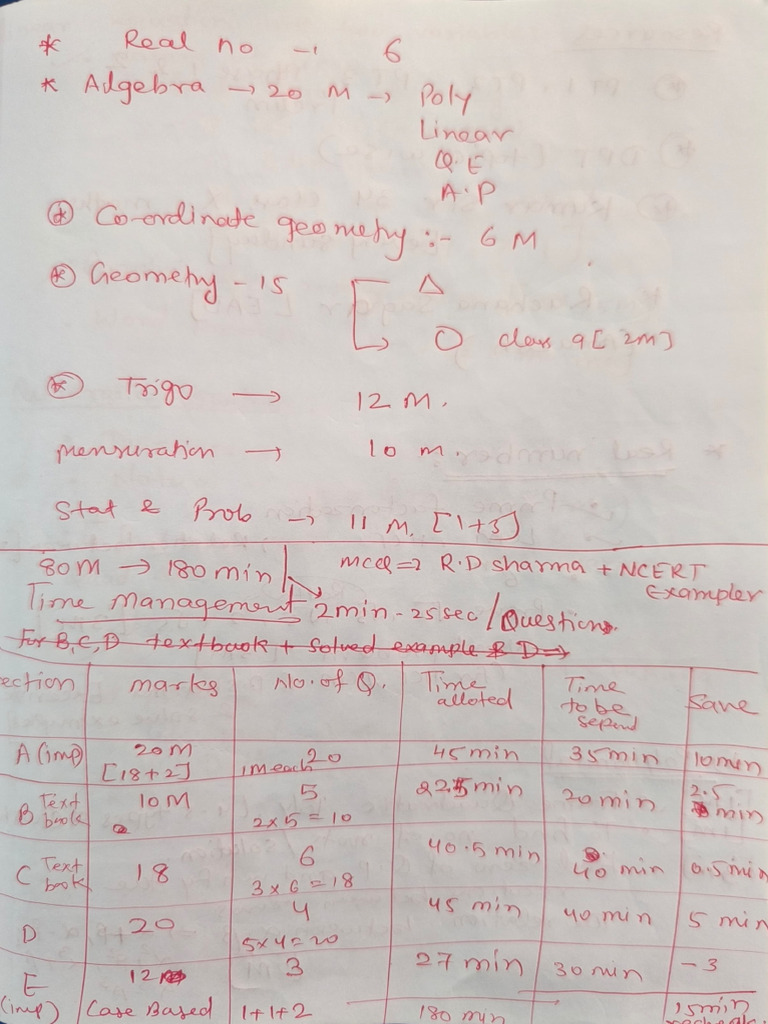 * Real no → 6
* Adgebra → 20 M → Poly
Linear
Q.E
A.P
* Co-ordinate geometry :- 6 M
* Geometry - 15 Δ
O class 9 [2M]
* Trigo → 12 M.
mensuration → 10 m.
Stat & Prob → 11 M. [1+3]
80M → 180 min
mcq => R.D sharma + NCERT
Exampler
Time management 2min - 25sec / Questions.
For B,C,D textbook + solved example & D =>
ection marks No. of Q. Time alloted Time to be Save
A (imp) 20M [18+2] 1M each 20 45 min 35 min 10 min
B Text book 10M 5 2x5 = 10 22.5 min 20 min 2.5 min
C Text book 18 6 3x6 = 18 40.5 min 40 min 0.5 min
D 20 4 5x4 = 20 45 min 40 min 5 min
E (imp) 12 Case Based 3 1+1+2 27 min 30 min -3
180 min 15 min